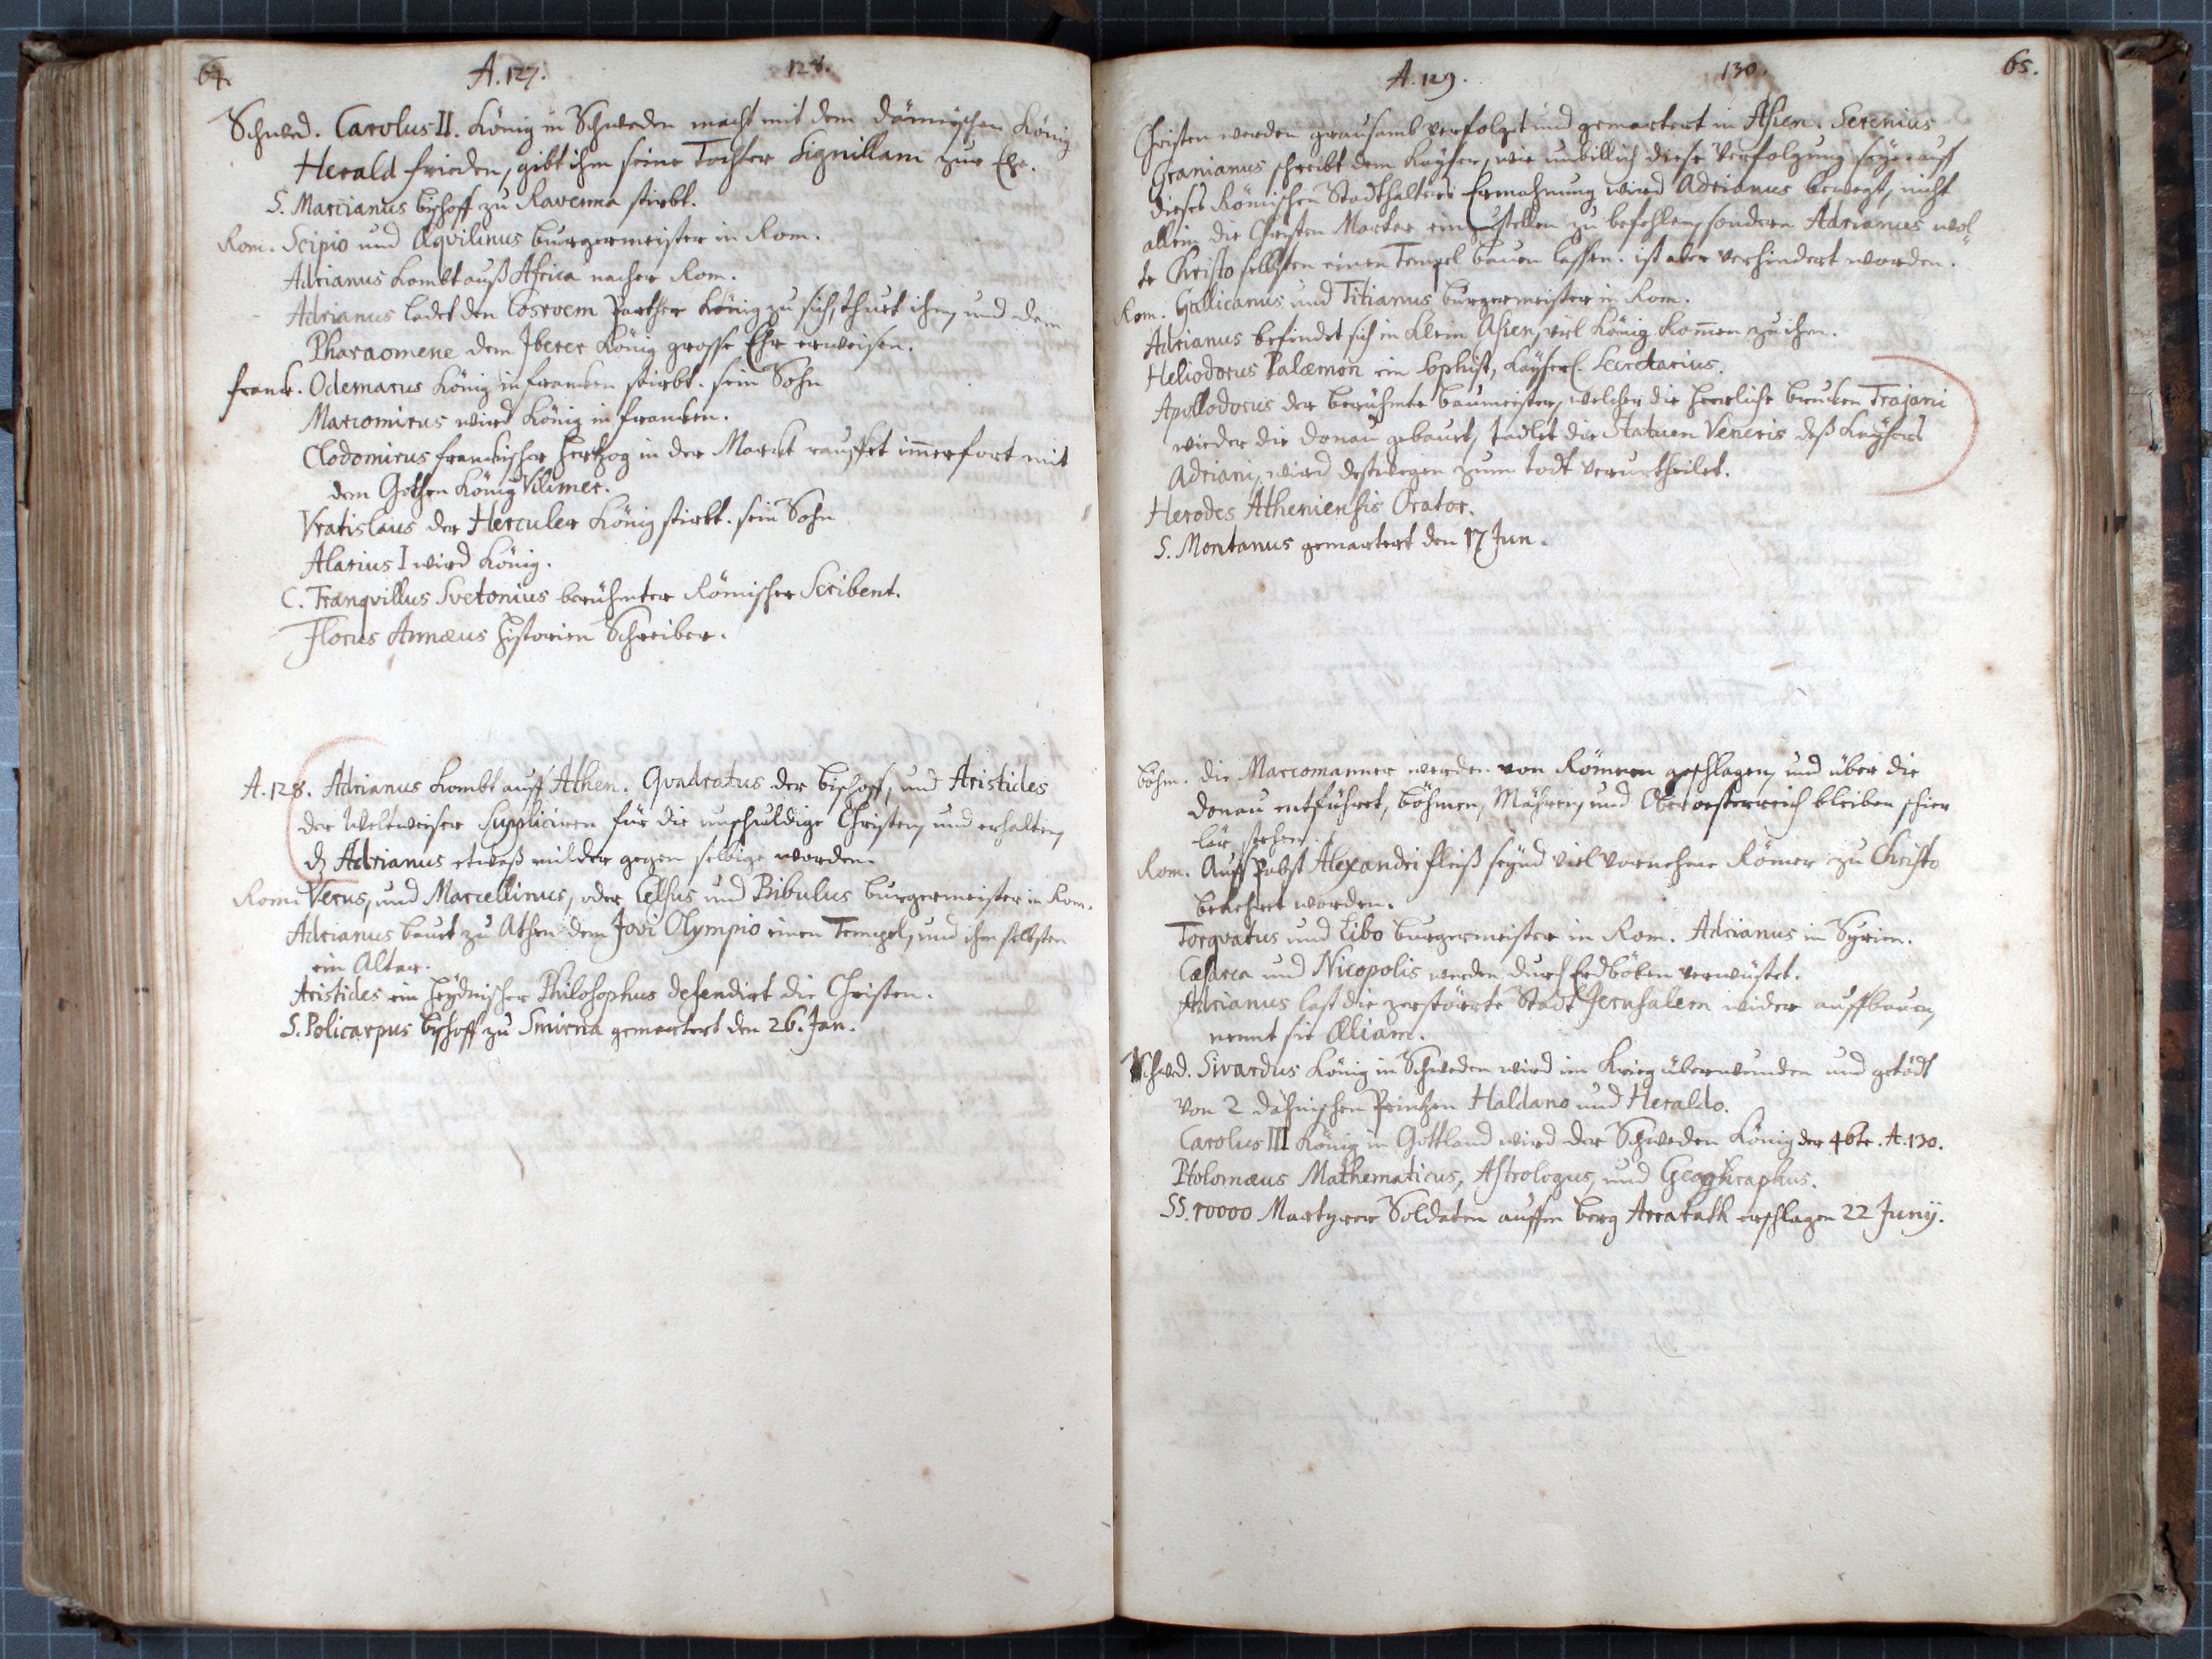 64. A. 127. 128.
Schwed. Carolus II. König in Schweden macht mit dem dänischen König
Herald frieden, gibt ihm seine Tochter Signillam zur Ehe.
S. Marcianus bischoff zu Ravenna stirbt.
Rom. Scipio und Æqvilinus burgermeister in Rom.
Adrianus kombt auß Africa nacher Rom.
Adrianus ladet den Cosroem Parther König zu sich, thuet ihm, und dem
Pharaomene dem Iberer König grosse Ehr erweisen.
franck. Odemarus König in francken stirbt. sein Sohn
Marcomirus wird König in francken.
Clodomirus franckischer Hertzog in der Marckt rauffet im̄erfort mit
dem Gothen König Vilimer.
Vratislaus der Herculer König stirbt. sein Sohn
Alarius I wird König.
C. Tranqvillus Svetonius berühmter Römischer Scribent.
Florus Annæus Historien Schreiber.
A. 128. Adrianus kombt auff Athen. Qvadratus der bischoff, und Aristides
der Weltweiser Suppliciren für die unschuldige Christen, und erhalten,
dz Adrianus etwaß milder gegen selbige worden.
Rom. Verus, und Marcellinus, oder Celsus und Bibulus burgermeister in Rom.
Adrianus bauet zu Athen dem Jovi Olympio einen Tempel, und ihm selbsten
ein Altar.
Aristides ein heydnischer Philosophus defendirt die Christen.
S. Policarpus bischoff zu Smirna gemartert den 26. Jan.
A. 129. 130. 65.
Christen werden grausamb verfolgt und gemartert in Asien. Serenius
Granianus schreibt dem Kayser, wie unbillich diese Verfolgung seye. auff
dieses Römischen Stadthalters Ermahnung wird Adrianus bewegt, nicht
allein die Christen Marter einzustellen zu befehlen, sondern Adrianus wol-
te Christo selbsten einen Tempel bauen lassen. ist aber verhindert worden.
Rom. Gallicanus und Titianus burgermeister in Rom.
Adrianus befindet sich in klein Asien, viel König kom̄en zu ihm.
Heliodorus Palæmon ein Sophist, Kayserl. Secretarius.
Apollodorus der berühmte baumeister, welcher die herrliche brucken Trajani
wieder die Donau gebauet, tadlet die Statuen Veneris deß Kaysers
Adriani, wird destwegen zum todt verurtheilet.
Herodes Atheniensis Orator.
S. Montanus gemartert den 17 Jun.
böhm. die Marcomanner werden von Römern geschlagen, und über die
Donau entführet, böhmen, Mähren, und Oberoesterreich bleiben schier
lär stehen.
Rom. Auff Pabst Alexandri fleiß seynd viel vornehme Römer zu Christo
bekehret worden.
Torqvatus und Libo burgermeister in Rom. Adrianus in Syrien.
Cæsarea und Nicopolis werden durch Erdböben verwüstet.
Adrianus last die zerstörrte Stadt Jerusalem wider auffbauen,
nennt sie Æliam.
Schwed. Sivardus König in Schweden wird im Krieg überwunden und getödt
von 2 dähnischen Printzen Haldano und Heraldo.
Carolus III König in Gottland wird der Schweden König der 46te. A. 130.
Ptolomæus Mathematicus, Astrologus, und Geographus.
SS. 10000 Martyrer Soldaten auffm berg Ararath erschlagen 22 Junij.